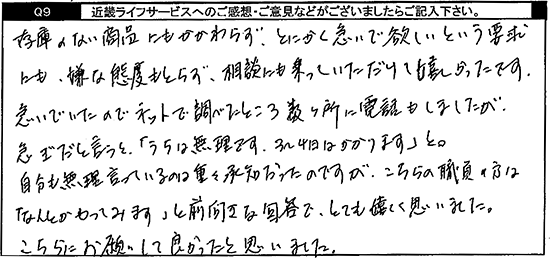 Q9 近畿ライフサービスへのご感想・ご意見などがございましたらご記入下さい。
存庫のない商品にもかかわらず、とにかく急いで欲しいという要求
にも、嫌な態度もとらず、相談にも乗っていただけて嬉しかったです。
急いでいたのでネットで調べたところ数ヶ所に電話もしましたが、
急ぎだと言うと、「うちは無理です。3、4日はかかります」と。
自分も無理言っているのは重々承知だったのですが、こちらの職員の方は
「なんとかやってみます」と前向きな回答で、とても嬉しく思いました。
こちらにお願いして良かったと思いました。